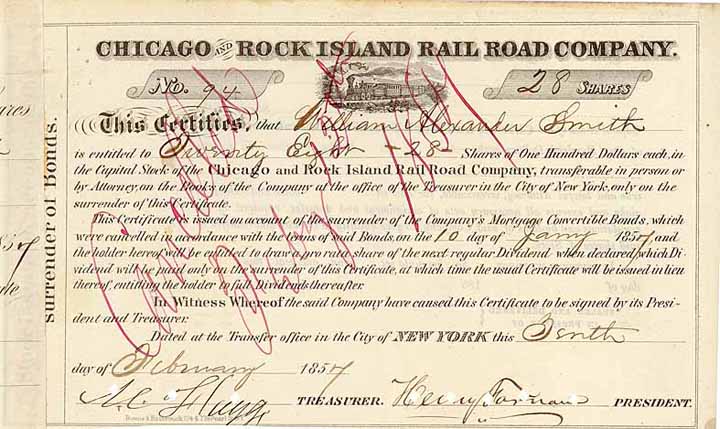 CHICAGO AND ROCK ISLAND RAIL ROAD COMPANY.
No. 94
28 SHARES
This Certifies, that William Alexander Smith
is entitled to Twenty Eight - 28 - Shares of One Hundred Dollars each, in
the Capital Stock of the Chicago and Rock Island Rail Road Company, transferable in person or
by Attorney, on the Books of the Company at the office of the Treasurer in the City of New York, only on the
surrender of this Certificate.
This Certificate is issued on account of the surrender of the Company's Mortgage Convertible Bonds, which
were cancelled in accordance with the terms of said Bonds, on the 10 day of Jany 1857, and
the holder hereof will be entitled to draw a pro rata share of the next regular Dividend when declared, which Di-
vidend will be paid only on the surrender of this Certificate, at which time the usual Certificate will be issued in lieu
thereof, entitling the holder to full Dividends thereafter.
In Witness Whereof the said Company have caused this Certificate to be signed by its Presi-
dent and Treasurer.
Dated at the Transfer office in the City of NEW YORK this Tenth
day of February 1857
TREASURER. Henry Farnam PRESIDENT.
surrender of Bonds.
Cancelled